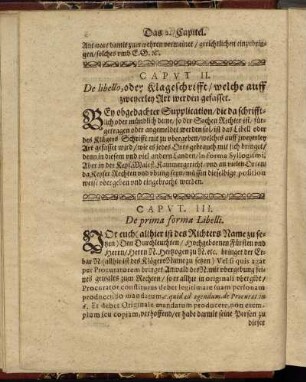 Das 2. Capitel.
Antwort damit zuerwehren vermeinet / gerichtlichen einzubringen / solches rath E. G. ꝛc.
CAPVT II.
De libello, oder Klageschrifft / welche auff
zweyerley Art werden gefasset.
BEy obgedachter Supplication / die da schrifftlich
oder mündlich dem / so der Sachen Richter ist / fürgetragen
oder angemeldet werden sol / ist das Libell oder
des Klägers Schrifft mit zu übergeben / welches auff zweyerley
Art gefasset wird / wie es jedes Orts gebrauch mit sich bringet /
denn in diesen und viel andern Landen / in forma Syllogismi,
Aber in der Keys. Maiest. Kammergericht
Rechten und übung seyn / müssen dieselbige position
weise übergeben und eingebracht werden.
CAPVT. III.
De prima forma Libelli.
VOr euch (allhier ist des Richters Name zu setzen)
Den Durchleuchten / Hochgebornen Fürsten und
Herrn / Herrn N. Hertzogen zu N. etc. bringet der Erbar
N. (allhie ist des Klägers Name zu setzen) Vel si quis agat
per Procuratorem bringet Anwald des N. mit
zum Rechten /
Procurator constitutus debet legitimare suam personam
producendo mandatum, quid ad agendum de Procurat.
Et debet Originale mandatum producere, non exemplum
seu copiam, verhoffent / er habe damit seine Person zu
dieser